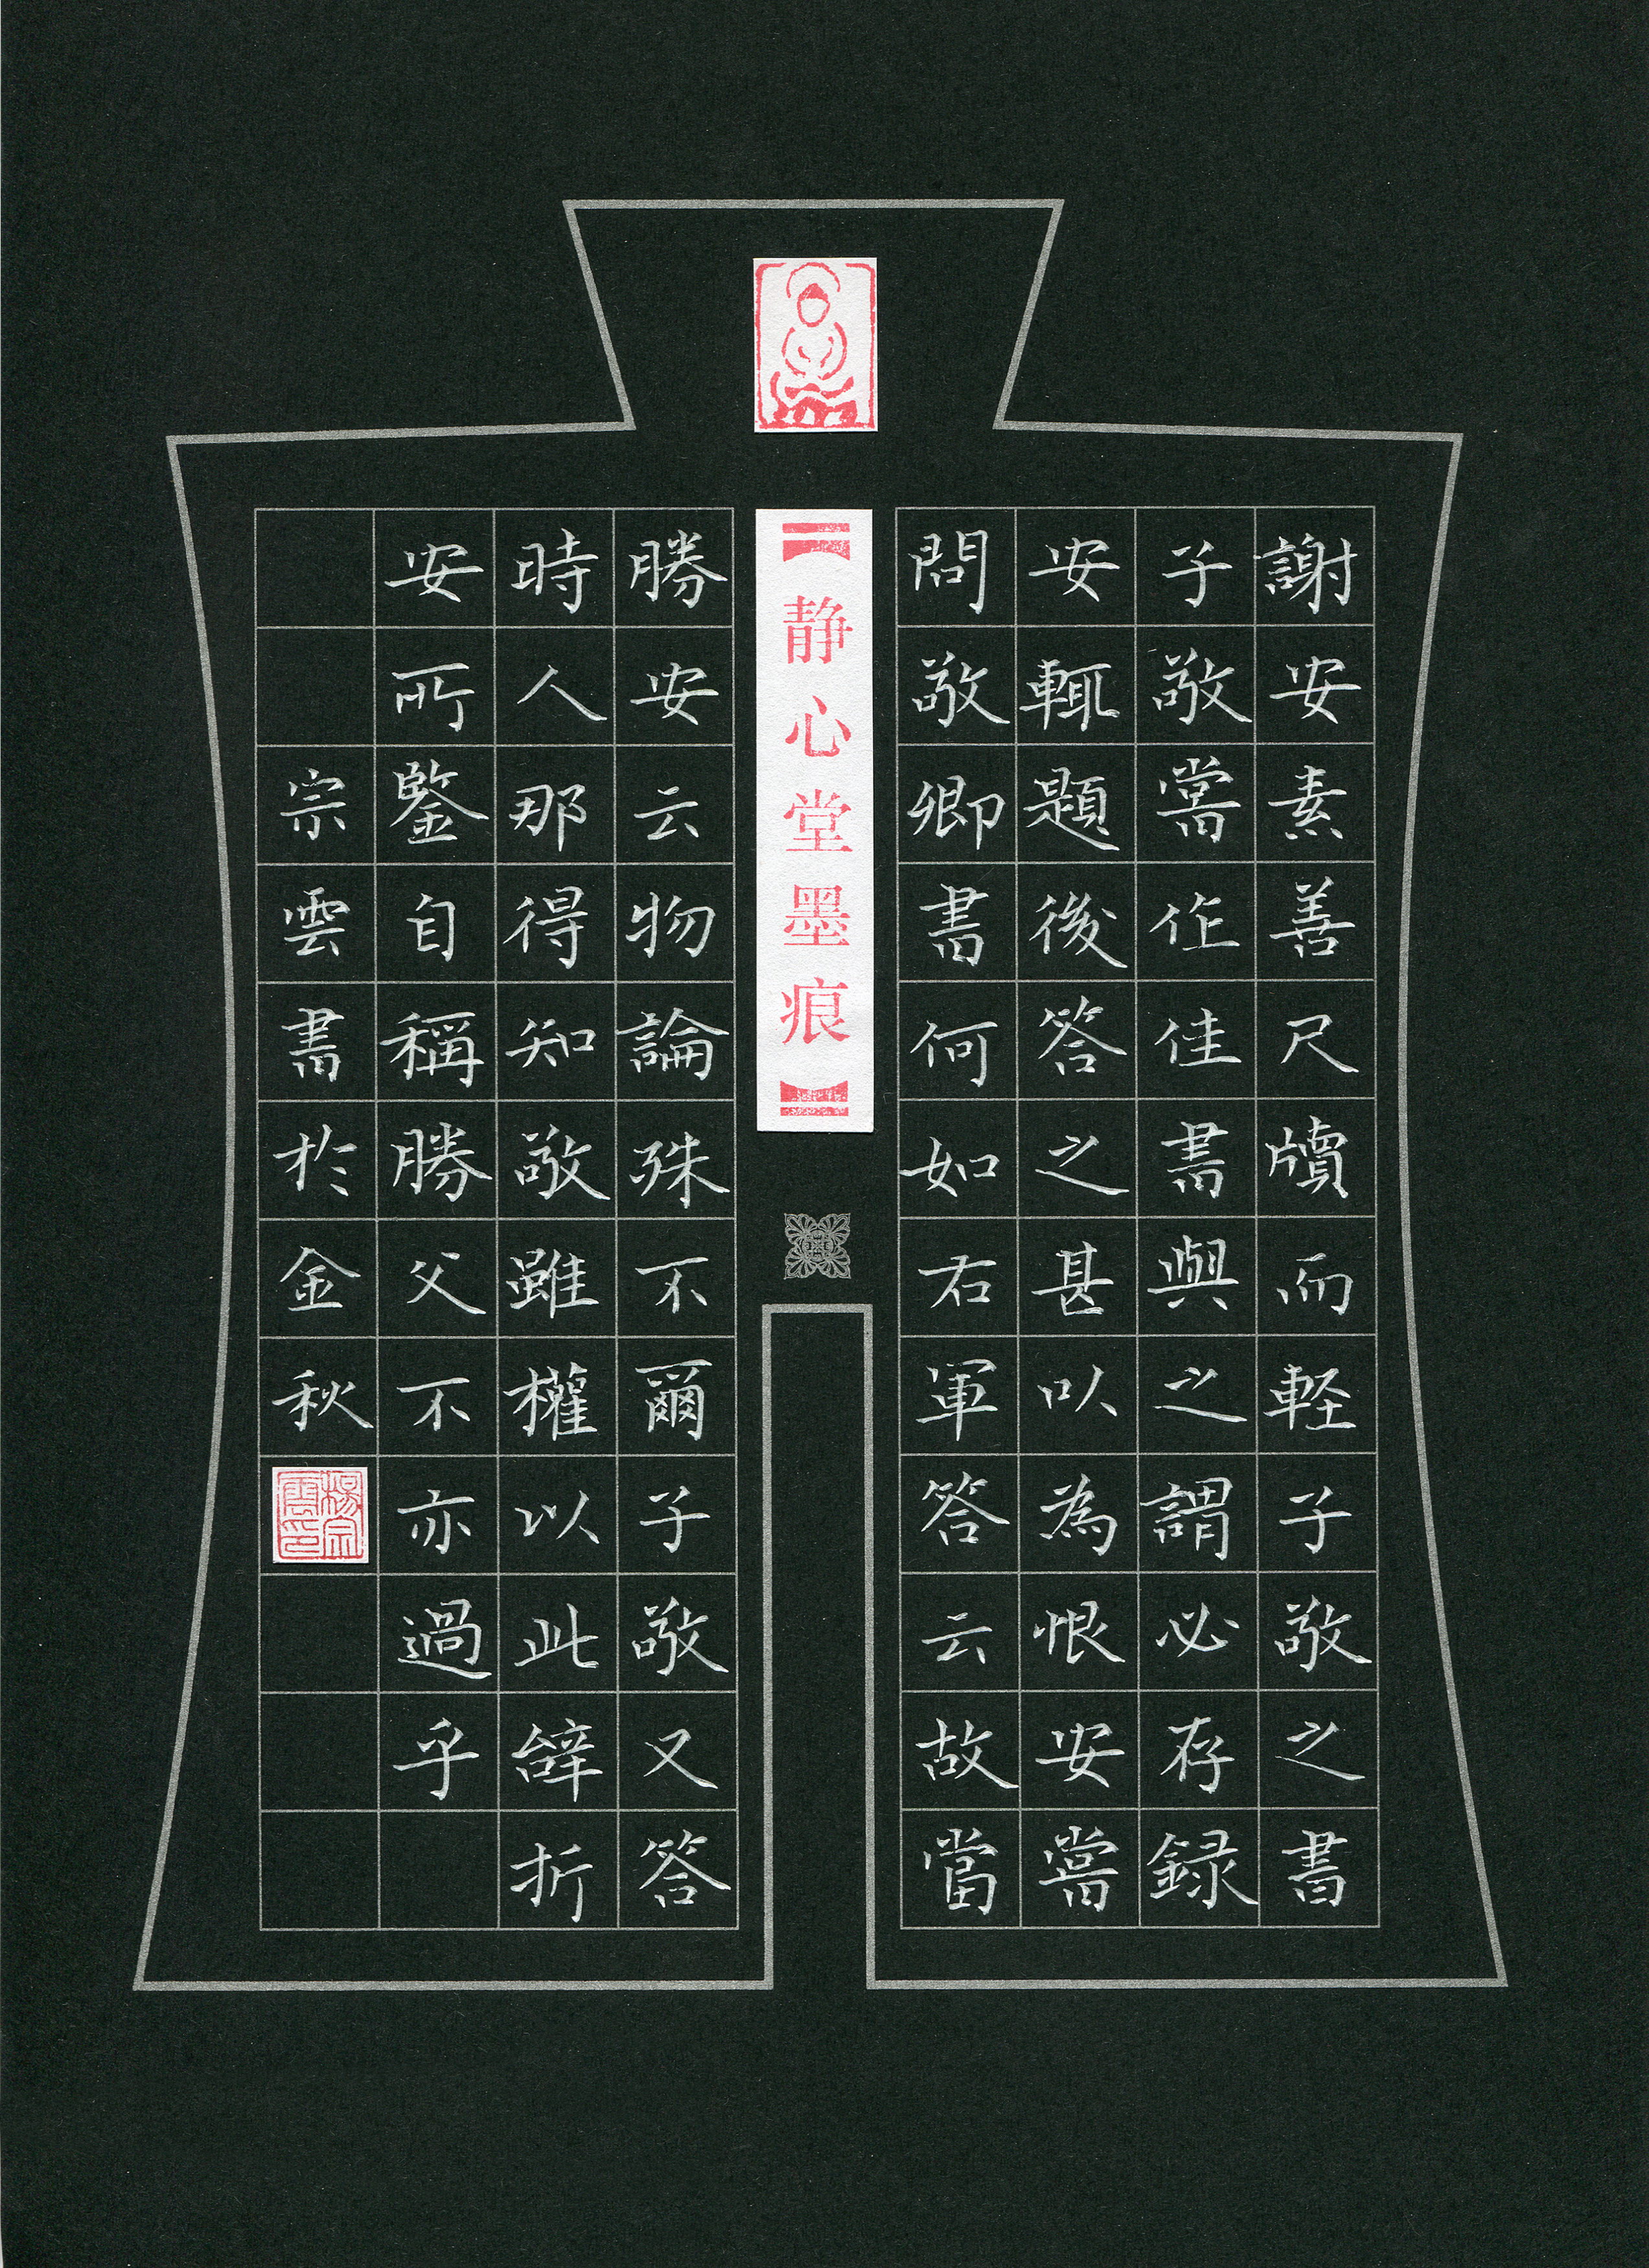 謝安素善尺牘而軽子敬之書
子敬嘗作佳書與之謂必存録
安輒題後答之甚以為恨安嘗
問敬卿書何如右軍答云故當
静心堂墨痕
勝安云物論殊不爾子敬又答
時人那得知敬雖權以此辭折
安所鑒自稱勝父不亦過乎
宗雲書於金秋
楊宗雲印